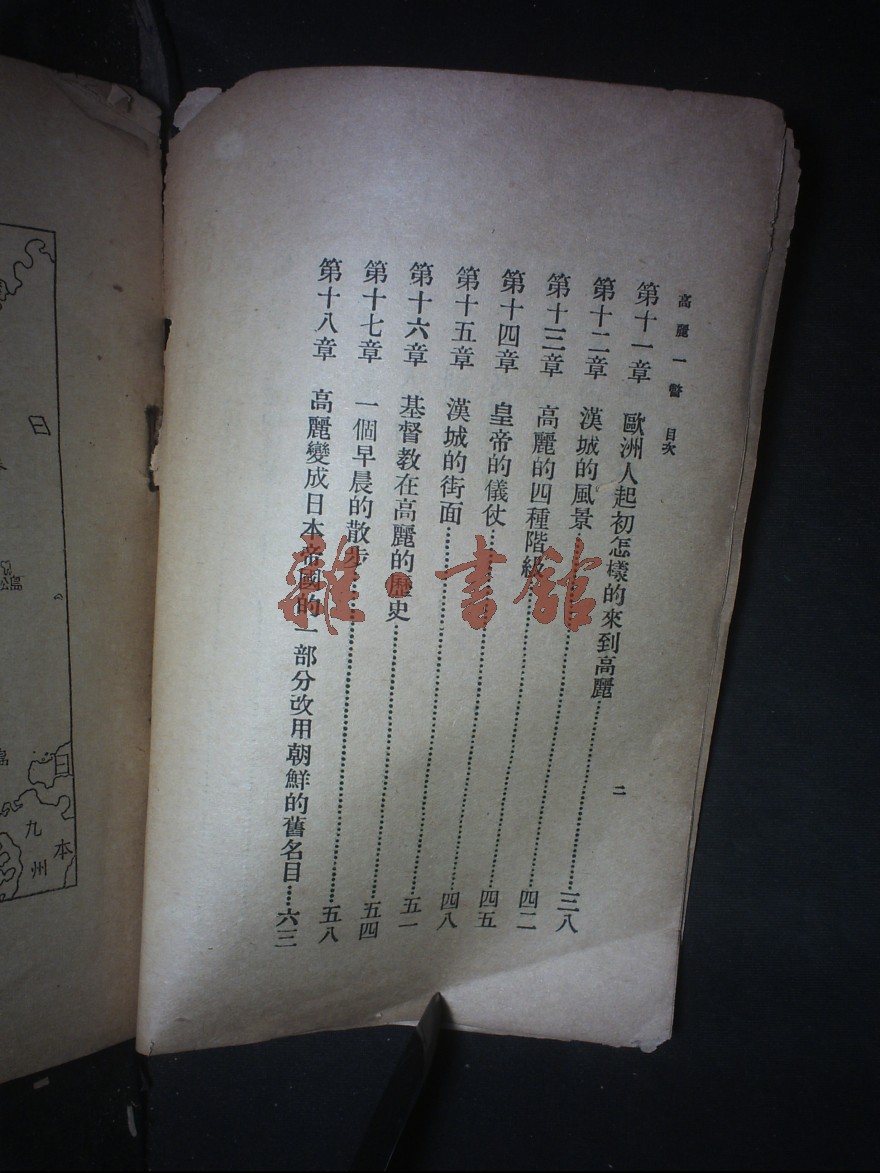 高麗一瞥 目次
二
第十一章 歐洲人起初怎樣的來到高麗……三八
第十二章 漢城的風景……四二
第十三章 高麗的四種階級……四五
第十四章 皇帝的儀仗……四八
第十五章 漢城的街面……五一
第十六章 基督教在高麗的歷史……五四
第十七章 一個早晨的散步……五八
第十八章 高麗變成日本帝國的一部分改用朝鮮的舊名目……六三
雜·書館
日
日本
九州